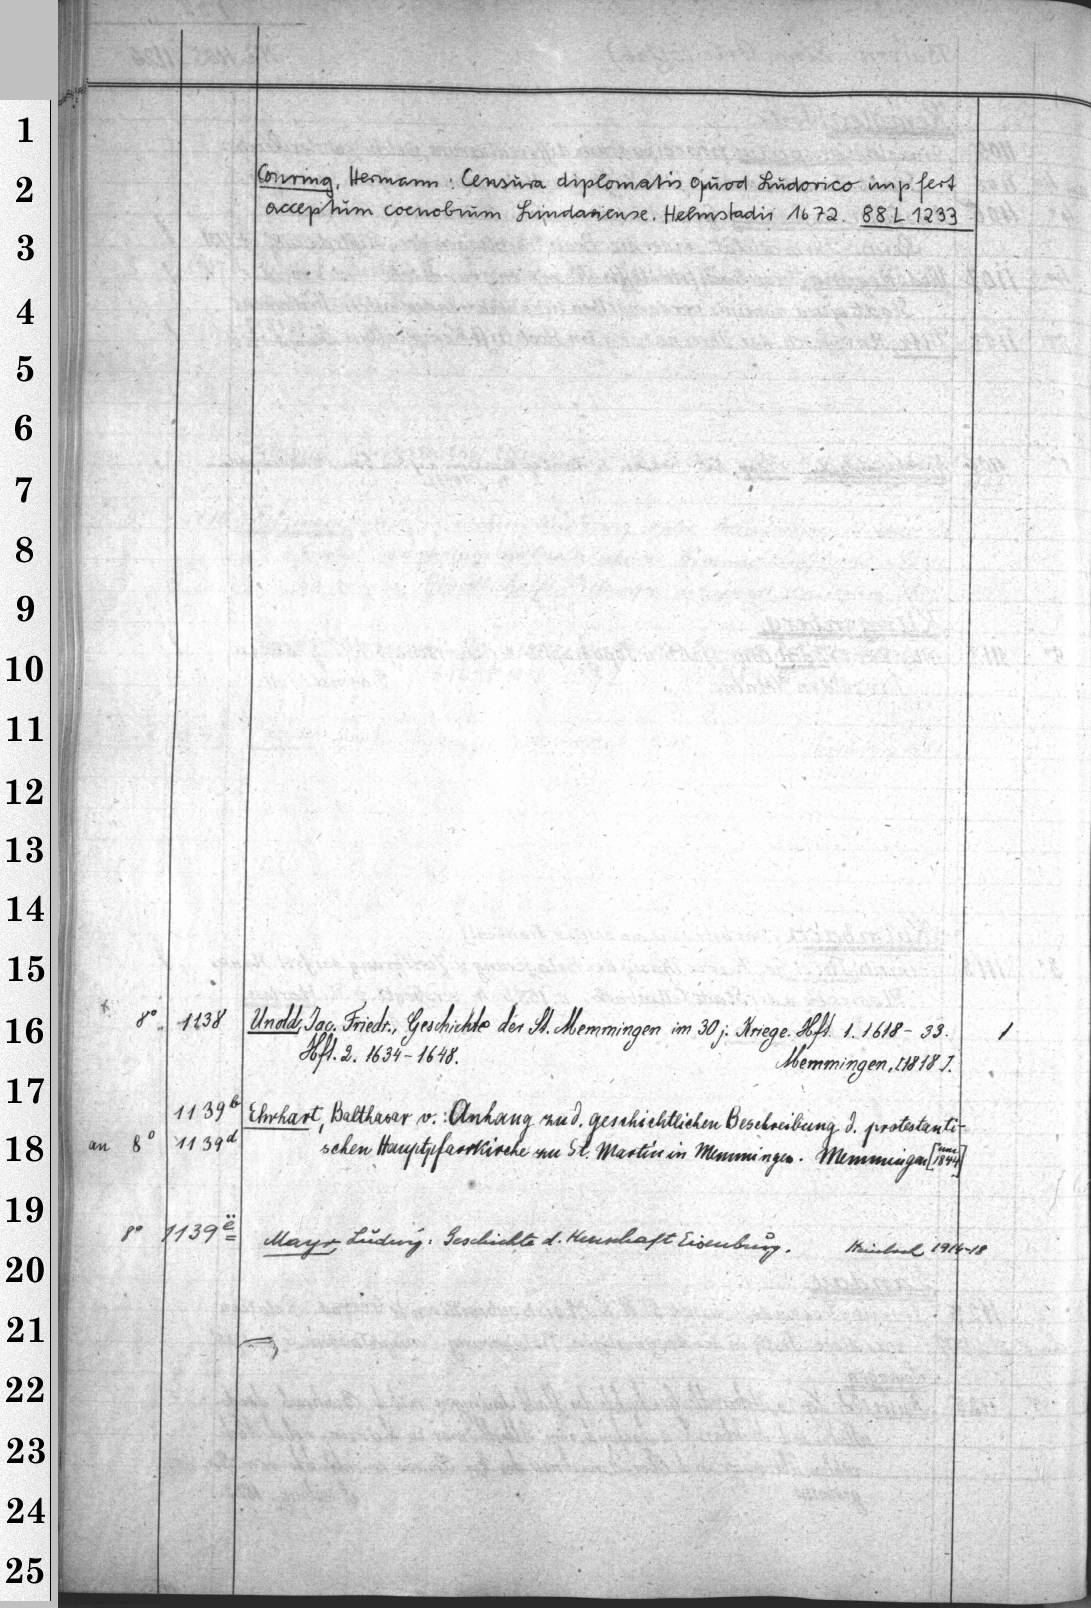 1
2
Conring, Hermann: Censura diplomatis quod Ludovico imp fert
acceptum coenobium Lindaviense. Helmstadii 1672. 88 L 1233
3
4
5
6
7
8
9
10
11
12
13
14
15
16
8° 1138 Unold, Jac. Friedr., Geschichte der St. Memmingen im 30 j. Kriege. Hft. 1. 1618-33. 1
Hft. 2. 1634-1648. Memmingen, [1818].
17
1139b Ehrhart, Balthasar v.: Anhang zu d. geschichtlichen Beschreibung d. protestanti-
18
an 8° 1139d schen Hauptpfarrkirche zu St. Martin in Memmingen. Memmingen [um 1844]
19
8° 1139e Mayr, Ludwig: Geschichte d. Herrschaft Eisenburg. 1914-18
20
21
22
23
24
25